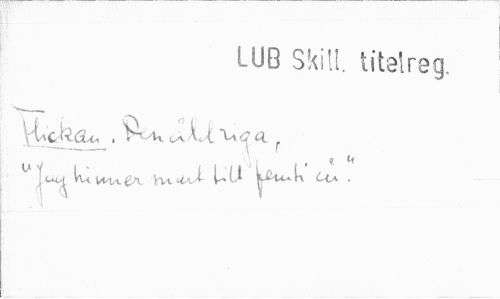 LUB Skill. titelreg.
Flickan. Den åldriga,
"Jag hinner snart till femti år."